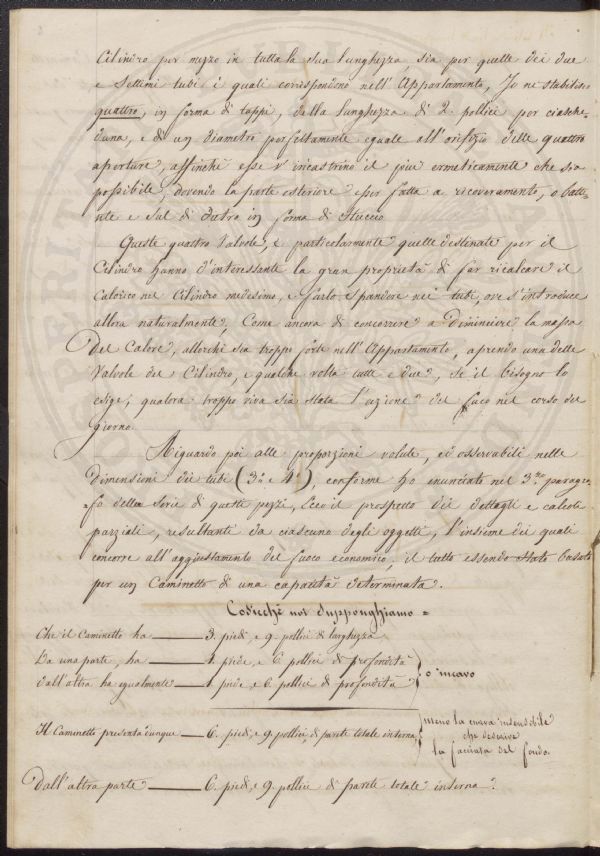 Cilindro per mezzo in tutta la sua lunghezza, sia per quelle dei due
e settimi tubi i quali corrispondono nell'Appartamento, Io ne stabilisco
quattro, in forma di tappi, della lunghezza di 2. pollici per ciasche-
duna, e di un diametro perfettamente eguale all'orifizio delle quattro
aperture, affinchè esse v'incastrino il più ermeticamente che sia
possibile, dovendo la parte esteriore esser fatta a ricoveramento, o batte-
nte e sul di dietro in forma di Stuccio
Queste quattro Valvole, e particolarmente quelle destinate per il
Cilindro hanno d'interessante la gran proprietà di far ricalcare il
Calorico nel Cilindro medesimo, e farlo espandere nei tubi, ove s'introduce
allora naturalmente, Come ancora di concorrere a diminuire la massa
del Calore, allorchè sia troppo forte nell'Appartamento, aprendo una delle
Valvole del Cilindro, e qualche volta tutte e due, se il bisogno lo
esige, qualora troppo viva sia stata l'azione del foco nel corso del
giorno.
Riguardo poi alle proporzioni volute, ed osservabili nelle
dimensioni dei tubi (3.° e 4.°), conforme ho enunciato nel 3.° paragra-
fo della serie di questi pezzi, Ecco il prospetto dei dettagli e calcoli
parziali, resultanti da ciascuno degli oggetti, l'insieme dei quali
concorre all'aggiustamento del fuoco economico, il tutto essendo stato basato
per un Caminetto di una capacità determinata.
Cosicchè noi Supponghiamo =
Che il Caminetto ha — 3. piedi, e 9. pollici di larghezza
Da una parte, ha — 1. piede, e 6. pollici di profondità
dall'altra ha egualmente — 1. piede e 6. pollici di profondità } o incavo
Il Caminetto presenta dunque — 6. piedi, e 9. pollici, di parete totale interna, } meno la curva insensibile
che descrive
la facciata del fondo.
Dall'altra parte — 6. piedi, e 9. pollici di parete totale interna.